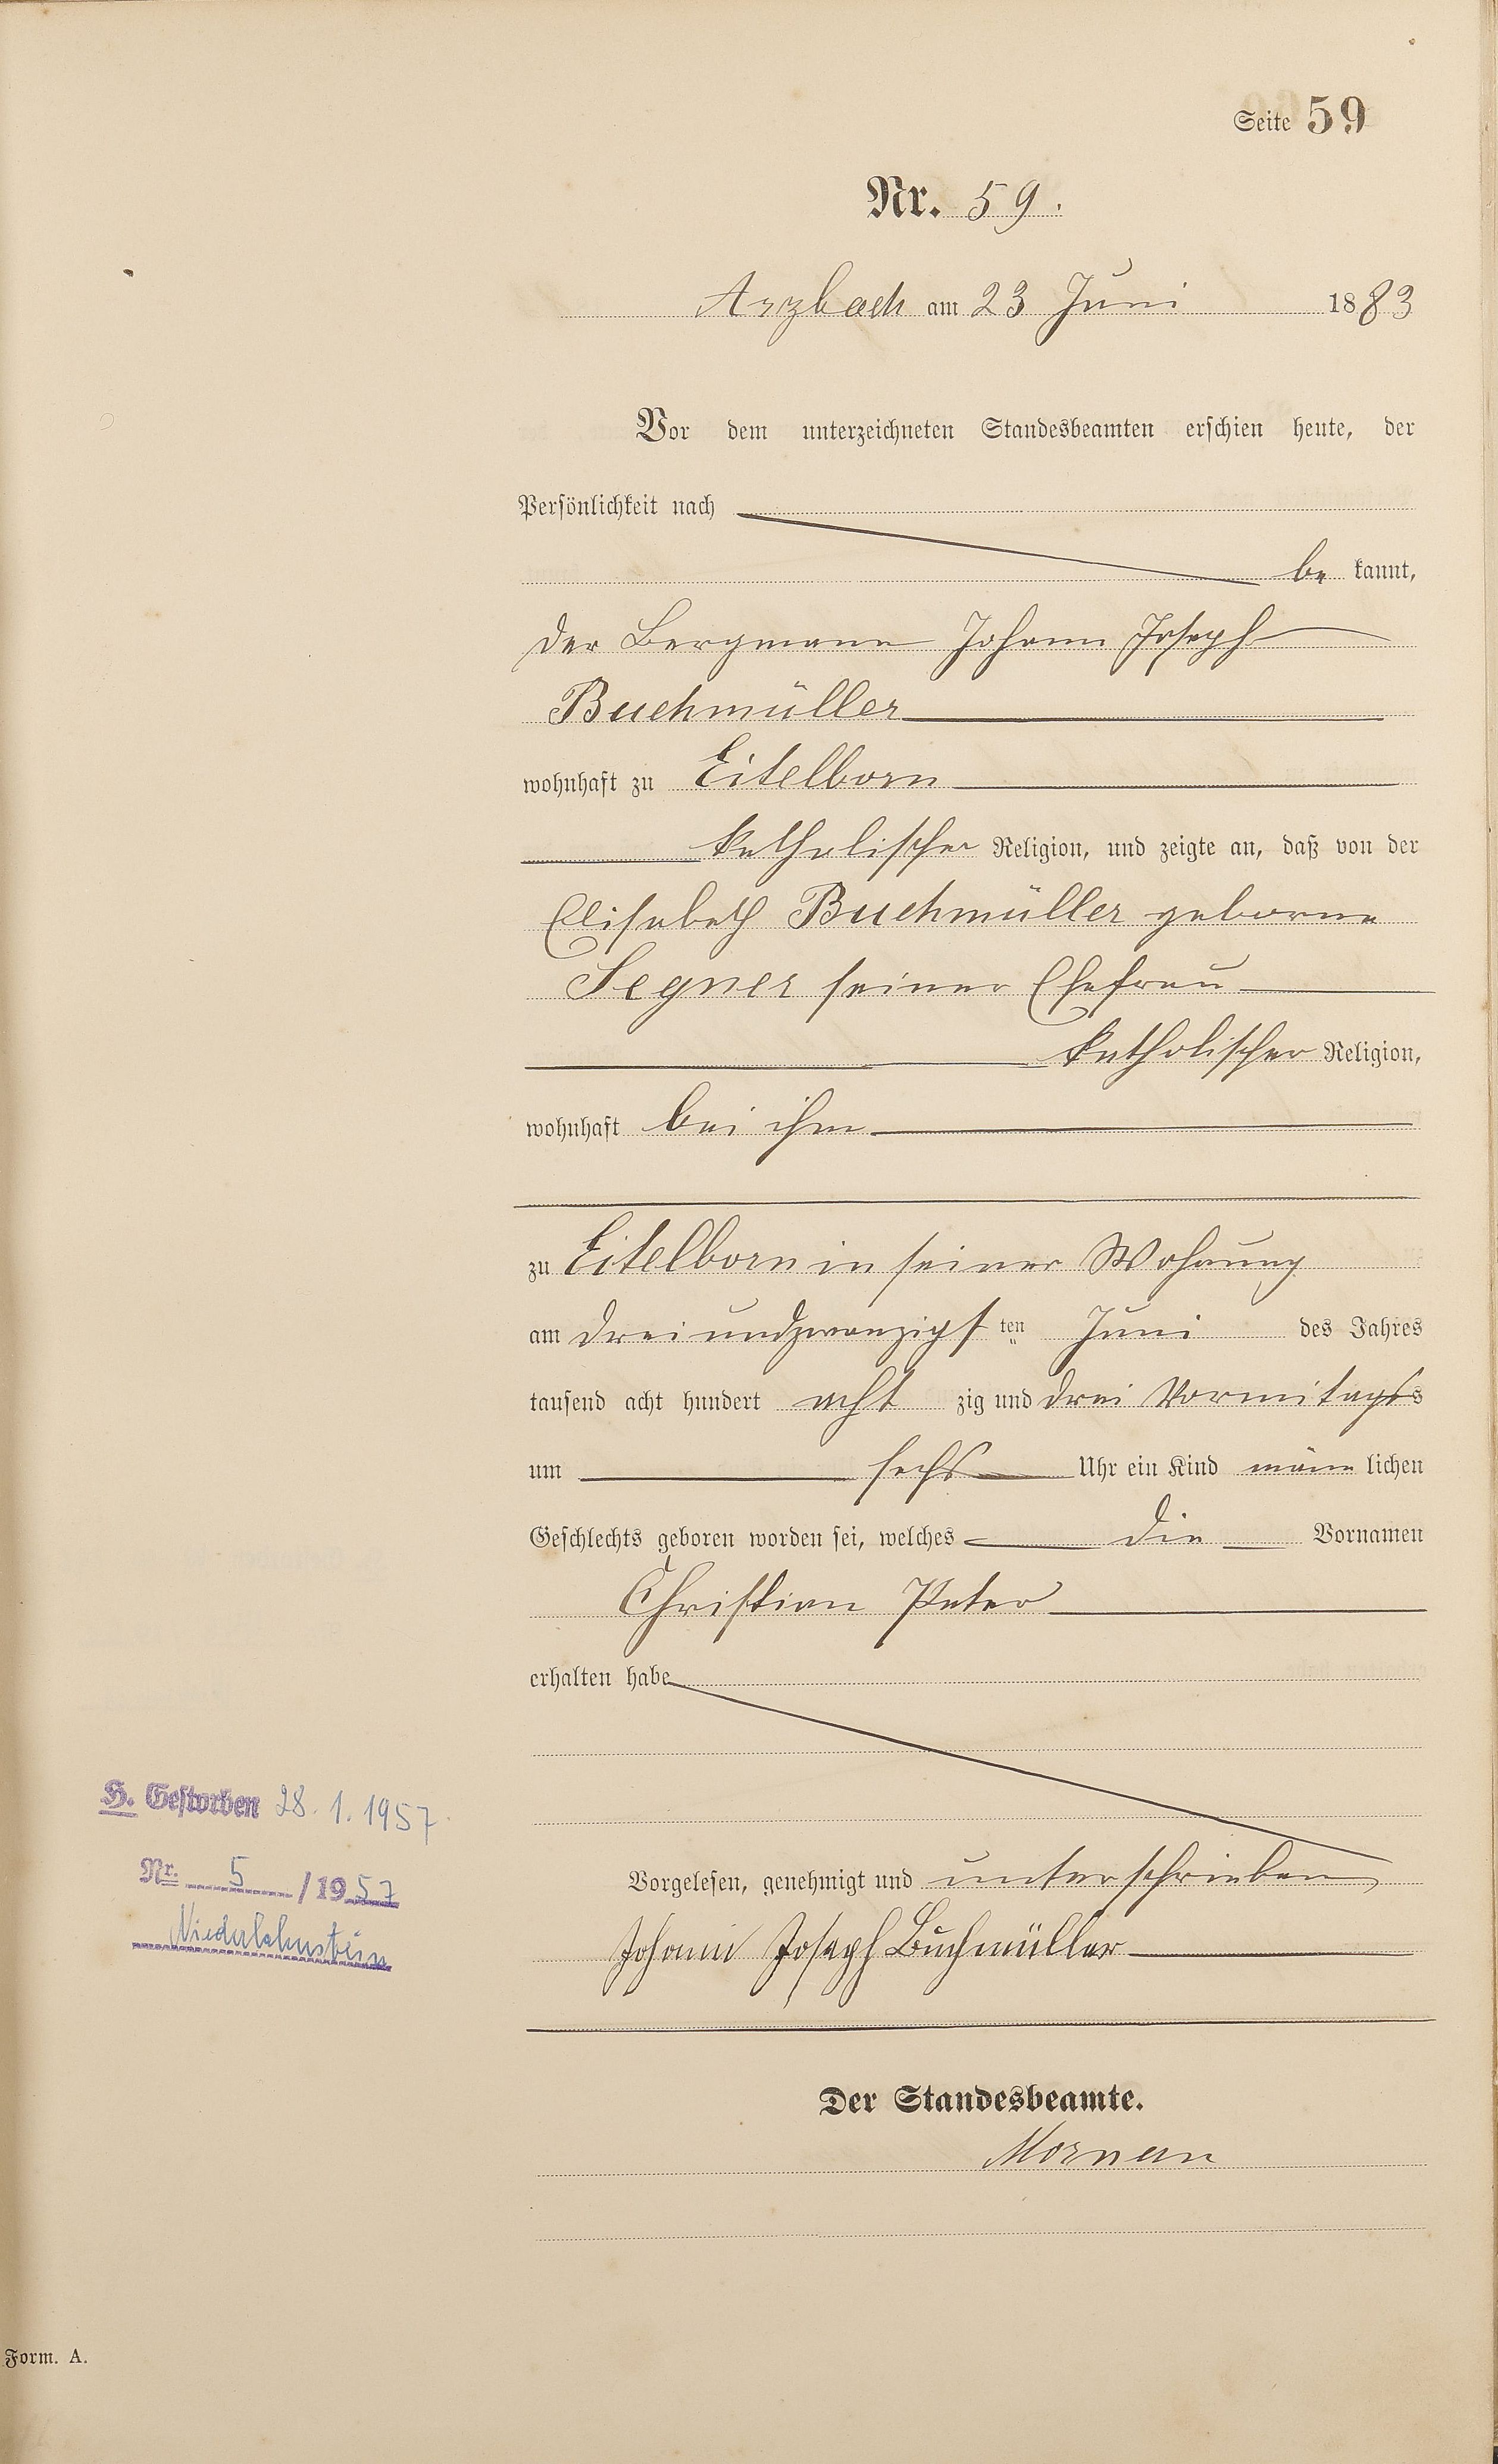 Seite 59
Nr. 59.
Arzbach am 23 Juni 1883
Vor dem unterzeichneten Standesbeamten erschien heute, der
Persönlichkeit nach
be kannt,
der Bergmann Johann Joseph
Buchmüller
wohnhaft zu Eitelborn
katholischer Religion, und zeigte an, daß von der
Elisabeth Buchmüller geborne
Segner seiner Ehefrau
katholischer Religion,
wohnhaft bei ihm
zu Eitelborn in seiner Wohnung
am dreiundzwanzigs ten Juni des Jahres
tausend acht hundert acht zig und drei Vormitags
um sechs Uhr ein Kind männ lichen
Geschlechts geboren worden sei, welches die Vornamen
Christian Peter
erhalten habe
H. Gestorben 28. 1. 1957
Nr. 5 / 1957
Niederlahnstein
Vorgelesen, genehmigt und unterschrieben
Johann Joseph Buchmüller
Der Standesbeamte.
Form. A.